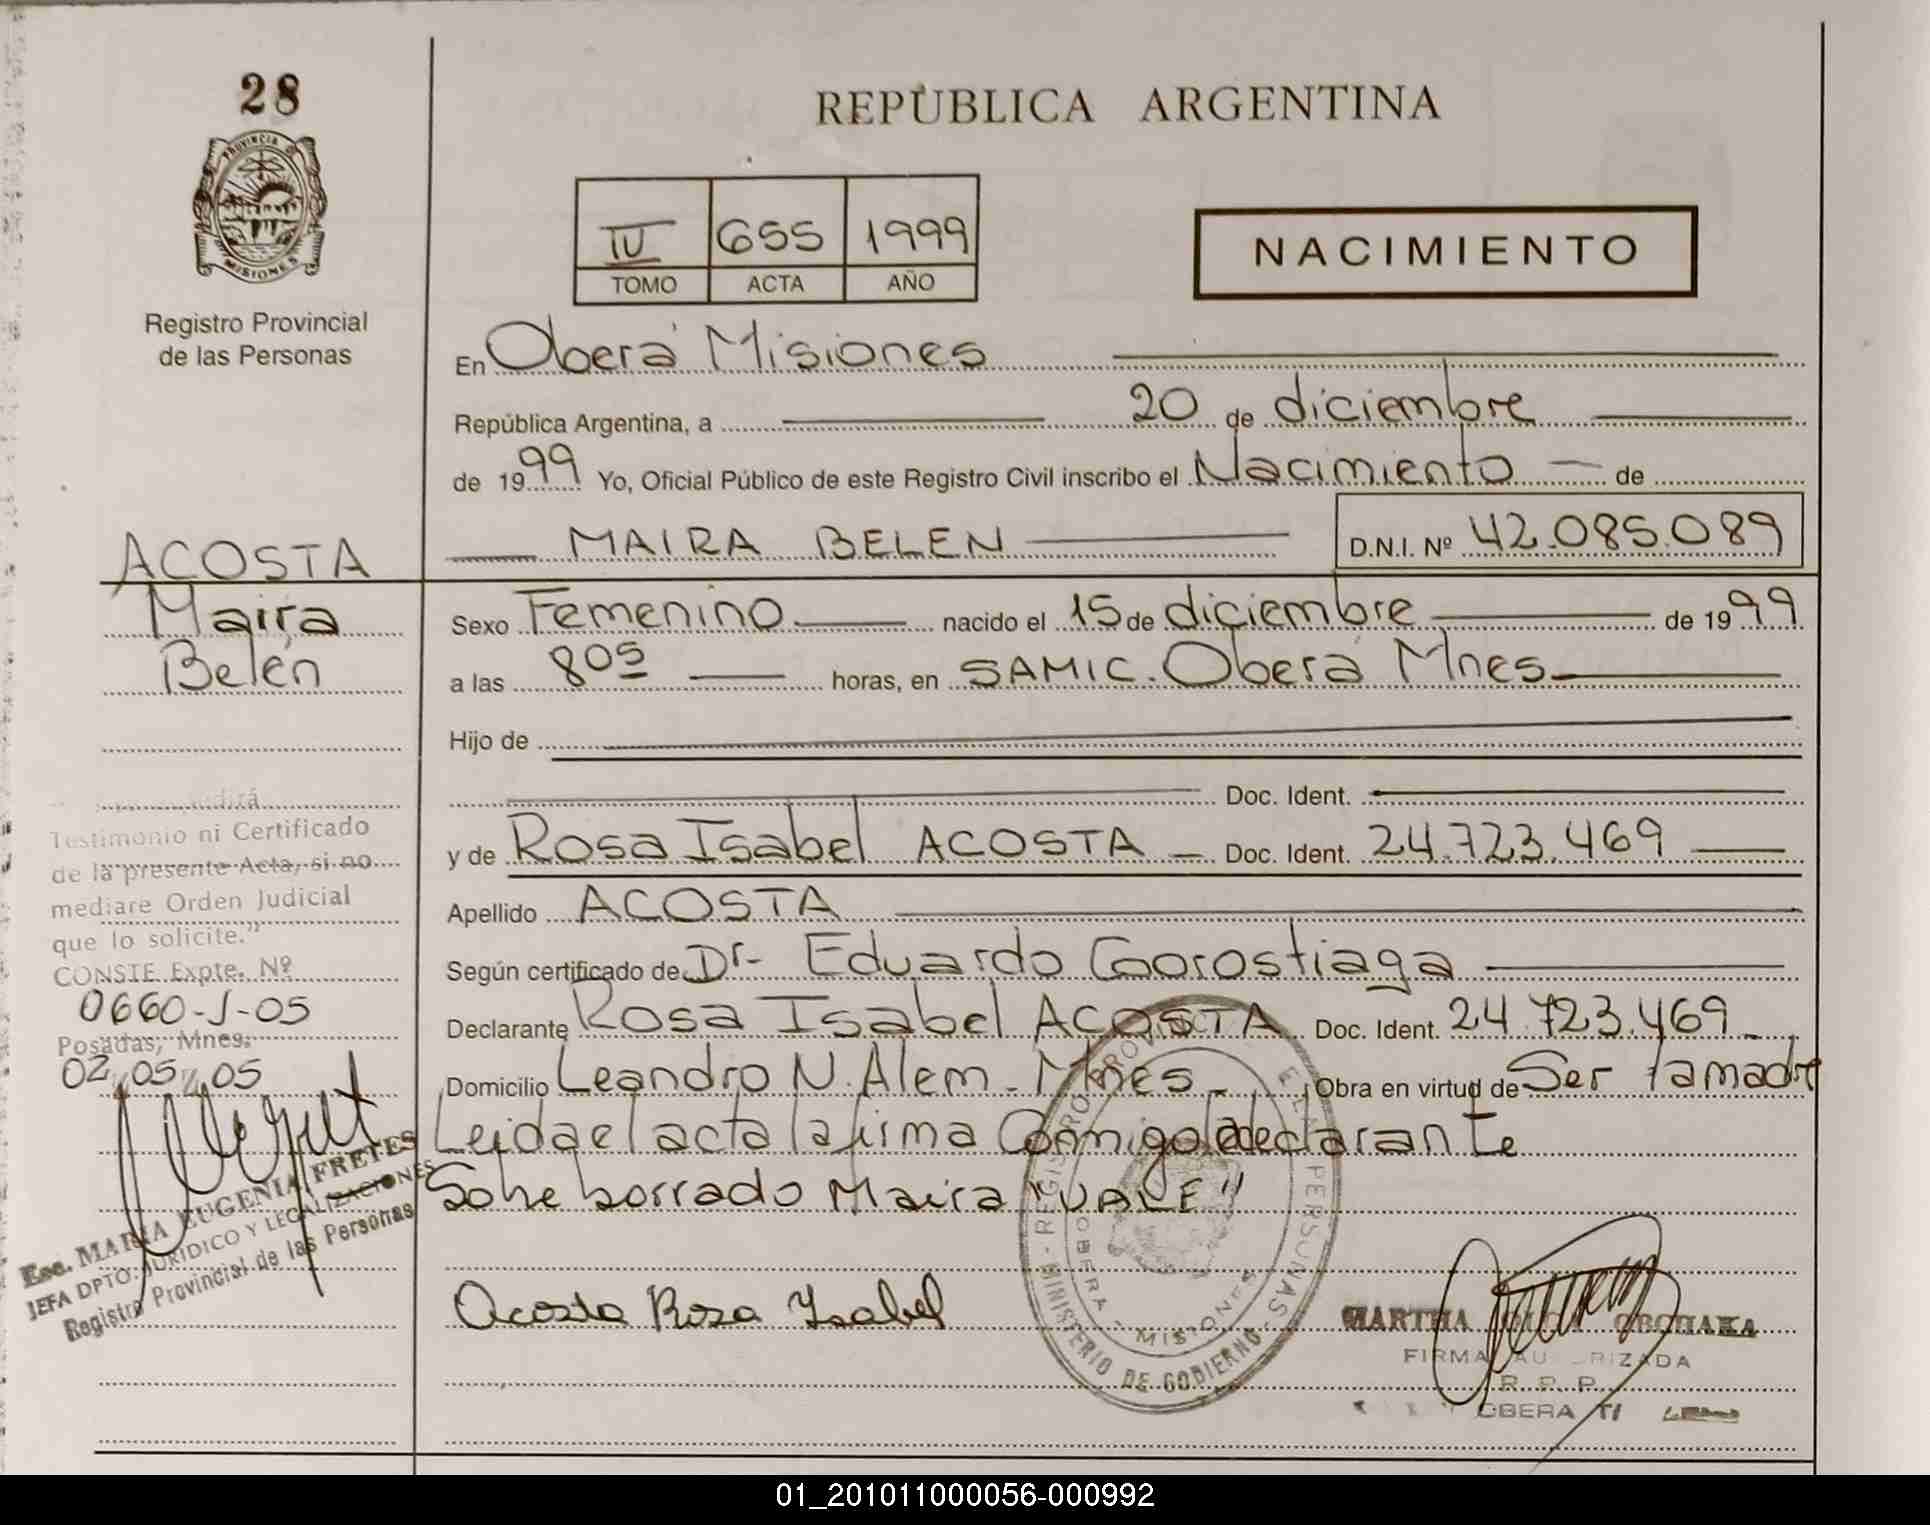 28
PROVINCIA DE
MISIONES
Registro Provincial
de las Personas
REPÚBLICA ARGENTINA
IV 655 1999
TOMO ACTA AÑO
NACIMIENTO
En Oberá Misiones
República Argentina, a 20 de diciembre
de 1999 Yo, Oficial Público de este Registro Civil inscribo el Nacimiento de
MAIRA BELEN D.N.I. Nº 42.085.089
Sexo Femenino nacido el 15 de diciembre de 1999
a las 805 horas, en SAMIC. Oberá Mnes
Hijo de
Doc. Ident.
y de Rosa Isabel ACOSTA Doc. Ident. 24.723.469
Apellido ACOSTA
Según certificado de Dr. Eduardo Gorostiaga
Declarante Rosa Isabel ACOSTA Doc. Ident. 24.723.469
Domicilio Leandro N. Alem - Mnes Obra en virtud de Ser la madre
Leida el acta la firma Conmigo la declarante
Sobre borrado Maira "VALE"
Acosta Rosa Isabel
ACOSTA
Maira
Belén
Testimonio ni Certificado
de la presente Acta, si no
mediare Orden Judicial
que lo solicite."
CONSTE Expte. Nº
0660-J-05
Posadas, Mnes.
02 05 05
Esc. MARIA EUGENIA FRETES
JEFA DPTO. JURIDICO Y LEGALIZACIONES
Registro Provincial de las Personas
REGISTRO PROVINCIAL DE LAS PERSONAS
MINISTERIO DE GOBIERNO
OBERA - MISIONES
MARTHA
FIRMA AUTORIZADA
R. P. P.
OBERA
01_201011000056-000992